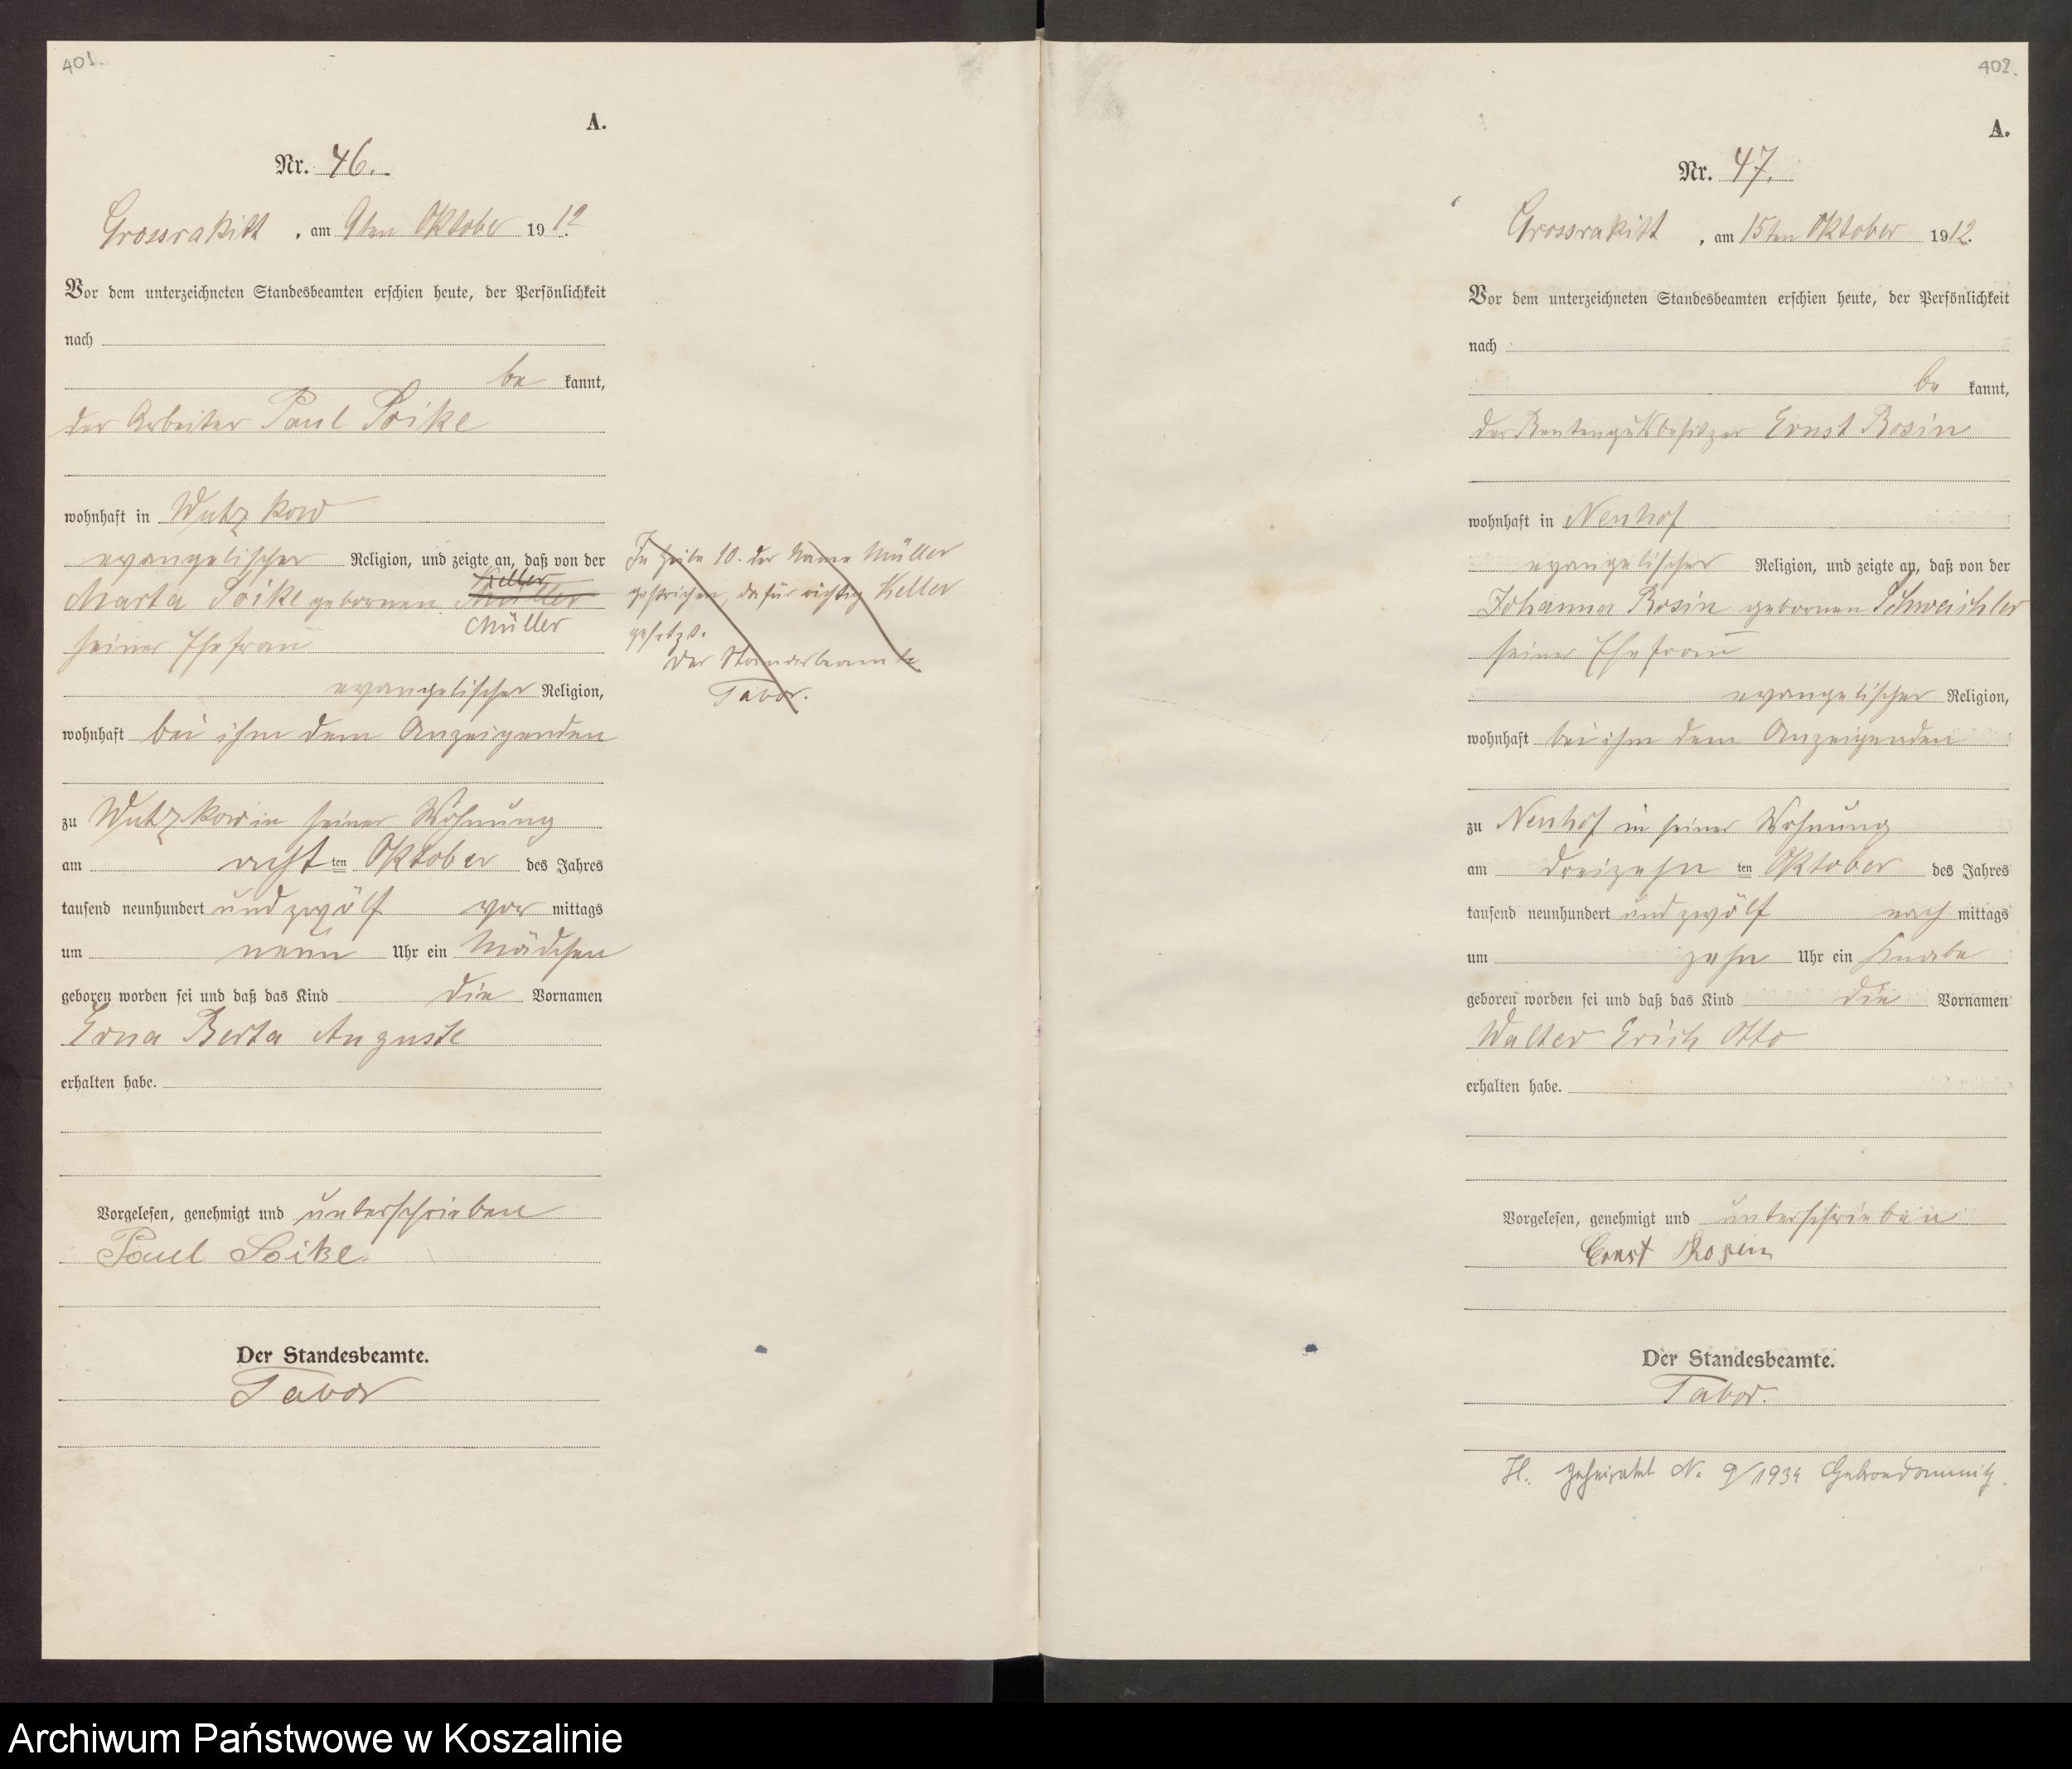 401.
A.
Nr. 46.
Grossrakitt, am 9ten Oktober 1912
Vor dem unterzeichneten Standesbeamten erschien heute, der Persönlichkeit
nach
be kannt,
der Arbeiter Paul Soike
wohnhaft in Wutzkow
evangelischer Religion, und zeigte an, daß von der
Keller
Marta Soike gebornen Müller
Müller
seiner Ehefrau
evangelischer Religion,
wohnhaft bei ihm dem Anzeigenden
zu Wutzkow in seiner Wohnung
am acht ten Oktober des Jahres
tausend neunhundert und zwölf vor mittags
um neun Uhr ein Mädchen
geboren worden sei und daß das Kind die Vornamen
Erna Berta Auguste
erhalten habe.
Vorgelesen, genehmigt und unterschrieben
Paul Soike
Der Standesbeamte.
Tabor
In Zeile 10. der Name Müller
gestrichen, dafür richtig Keller
gesetzt.
Der Standesbeamte
Tabor.
402.
A.
Nr. 47.
Grossrakitt, am 15ten Oktober 1912.
Vor dem unterzeichneten Standesbeamten erschien heute, der Persönlichkeit
nach
be kannt,
der Rentengutsbesitzer Ernst Rosin
wohnhaft in Neuhof
evangelischer Religion, und zeigte an, daß von der
Johanna Rosin gebornen Schweichler
seiner Ehefrau
evangelischer Religion,
wohnhaft bei ihm dem Anzeigenden
zu Neuhof in seiner Wohnung
am dreizehn ten Oktober des Jahres
tausend neunhundert und zwölf nach mittags
um zehn Uhr ein Knabe
geboren worden sei und daß das Kind die Vornamen
Walter Erich Otto
erhalten habe.
Vorgelesen, genehmigt und unterschrieben
Ernst Rosin
Der Standesbeamte.
Tabor.
H. geheiratet N. 9/1934
Archiwum Państwowe w Koszalinie